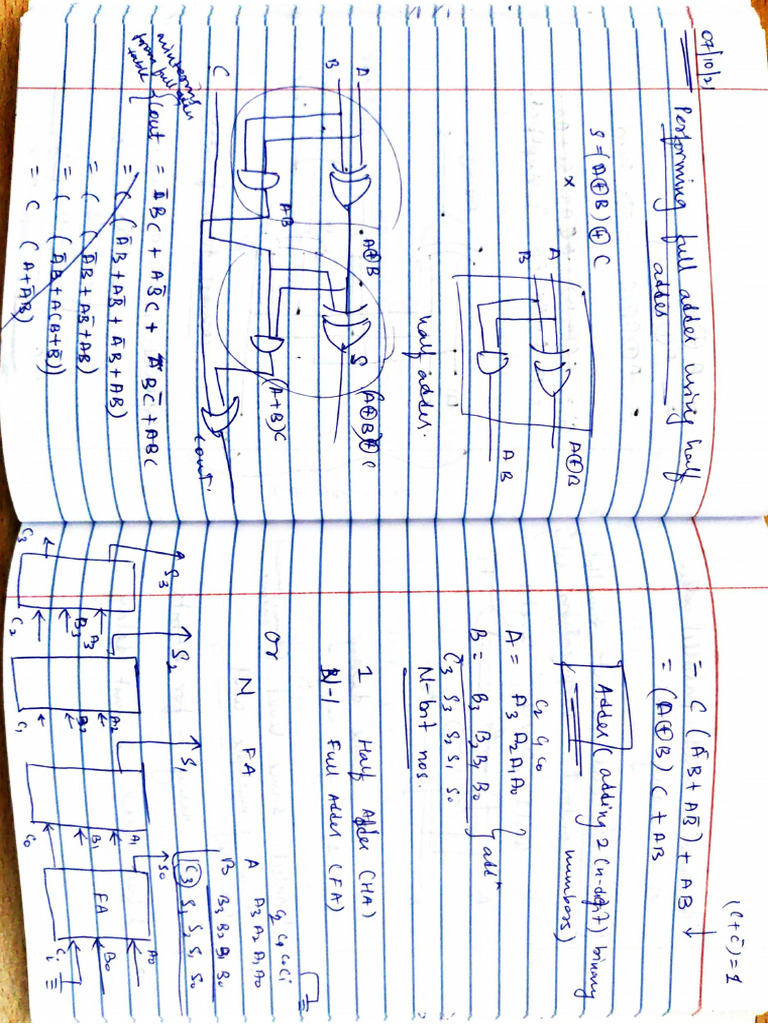 07/10/21
Performing full adder using half
adder
S = (A⊕B)⊕C
x
A
B
A⊕B
AB
half adder.
A
B
A⊕B
(A⊕B)⊕C
S
AB
(A+B)C
C
Cout.
minterms
from full adder
table
Cout = ĀBC + AB̄C + ABC̄ + ABC
= C (ĀB + AB̄ + ĀB + AB)
= C (ĀB + AB̄ + AB)
= C (ĀB + A(B + B̄))
= C (A + ĀB)
(C + C̄) = 1
= C (ĀB + AB̄) + AB
= (A⊕B) C + AB
Adder (adding 2 (n-digit) binary
numbers)
C2 C1 C0
A = A3 A2 A1 A0
B = B3 B2 B1 B0 } addn
C3 S3 S2 S1 S0
N-bit nos.
1 Half Adder (HA)
N-1 Full Adder (FA)
or
N FA
C2 C1 C0 Ci
A A3 A2 A1 A0
B B3 B2 B1 B0
C3 S3 S2 S1 S0
S3 S2 S1 S0
A3 A2 A1 A0
B3 B2 B1 B0
FA
C3 C2 C1 C0 Ci